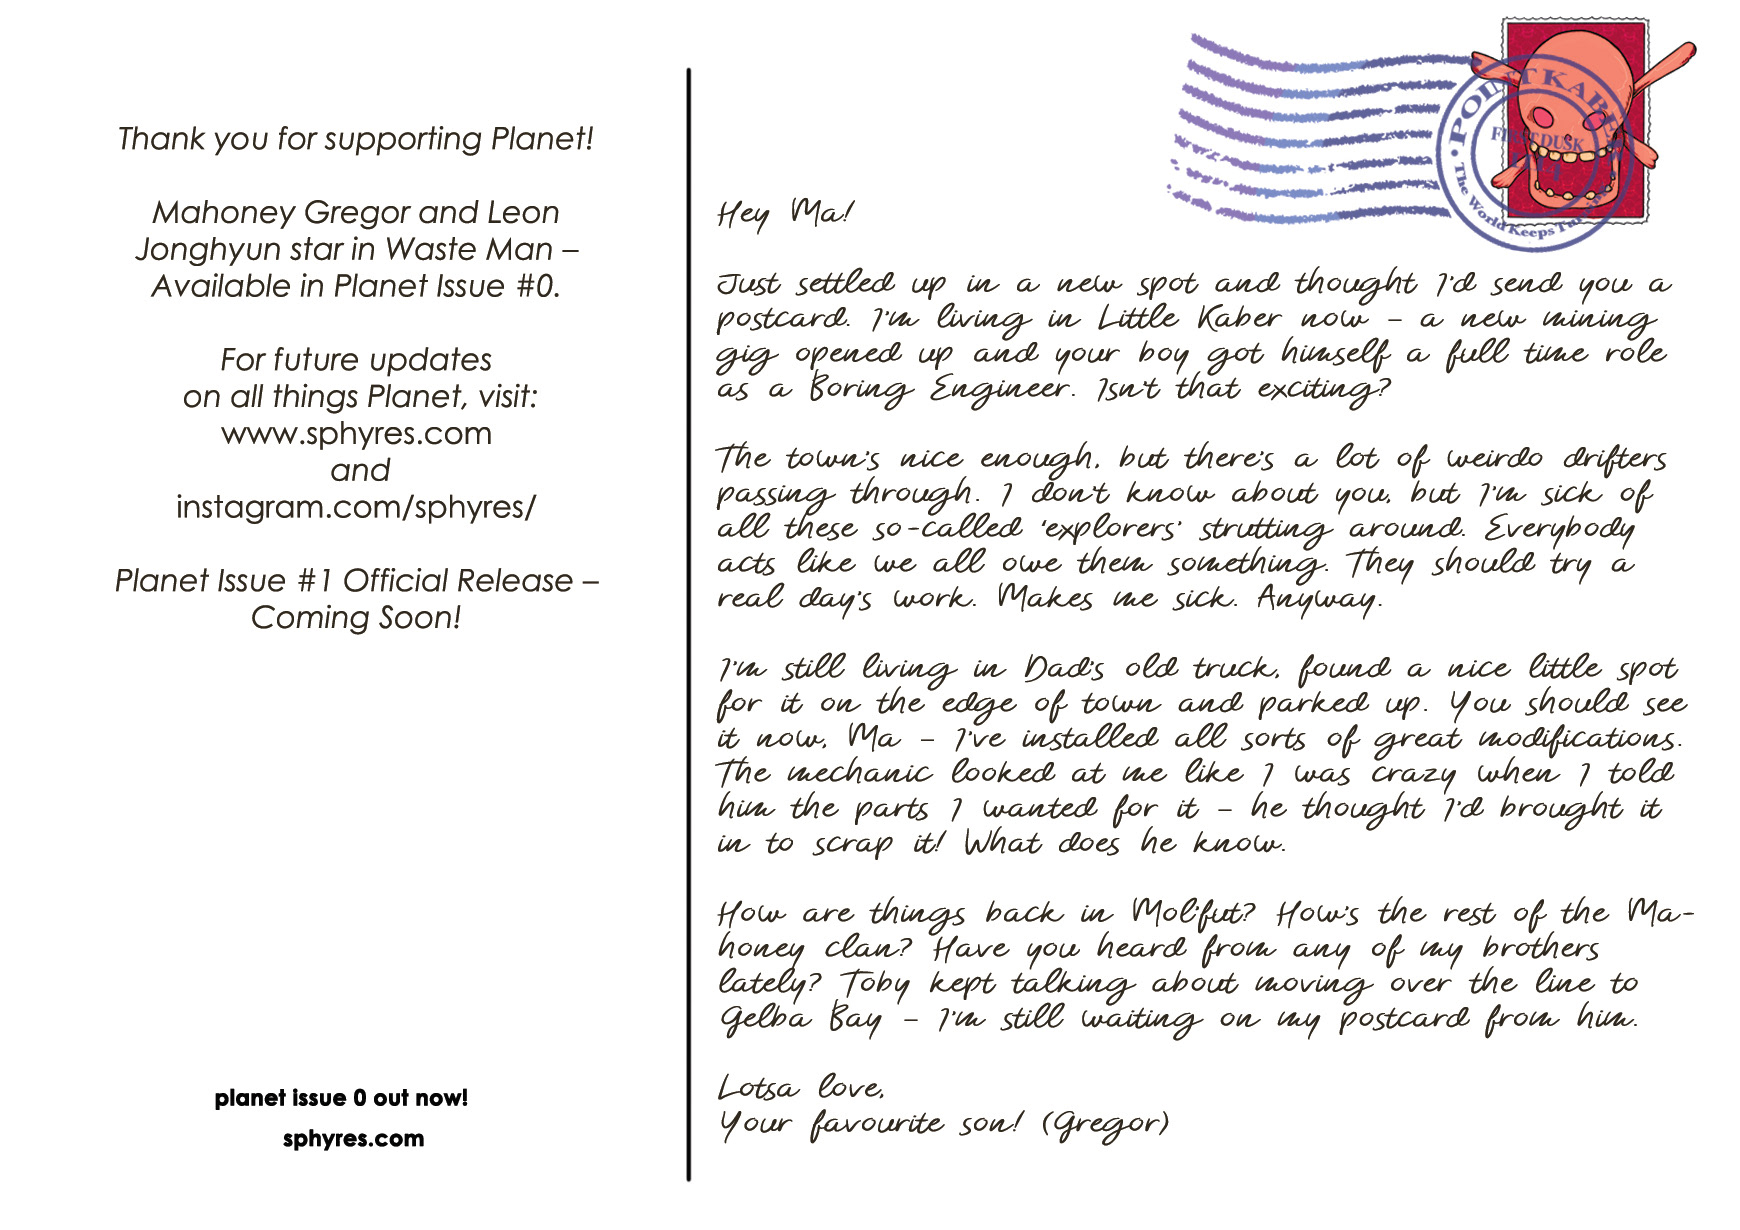 Thank you for supporting Planet!
Mahoney Gregor and Leon
Jonghyun star in Waste Man –
Available in Planet Issue #0.
For future updates
on all things Planet, visit:
www.sphyres.com
and
instagram.com/sphyres/
Planet Issue #1 Official Release –
Coming Soon!
planet issue 0 out now!
sphyres.com
POINT KABER
FIRST DUSK
The World Keeps Turning
Hey Ma!
Just settled up in a new spot and thought I'd send you a
postcard. I'm living in Little Kaber now – a new mining
gig opened up and your boy got himself a full time role
as a Boring Engineer. Isn't that exciting?
The town's nice enough, but there's a lot of weirdo drifters
passing through. I don't know about you, but I'm sick of
all these so-called 'explorers' strutting around. Everybody
acts like we all owe them something. They should try a
real day's work. Makes me sick. Anyway.
I'm still living in Dad's old truck, found a nice little spot
for it on the edge of town and parked up. You should see
it now, Ma – I've installed all sorts of great modifications.
The mechanic looked at me like I was crazy when I told
him the parts I wanted for it – he thought I'd brought it
in to scrap it! What does he know.
How are things back in Mol'fut? How's the rest of the Ma-
honey clan? Have you heard from any of my brothers
lately? Toby kept talking about moving over the line to
Gelba Bay – I'm still waiting on my postcard from him.
Lotsa love,
Your favourite son! (Gregor)